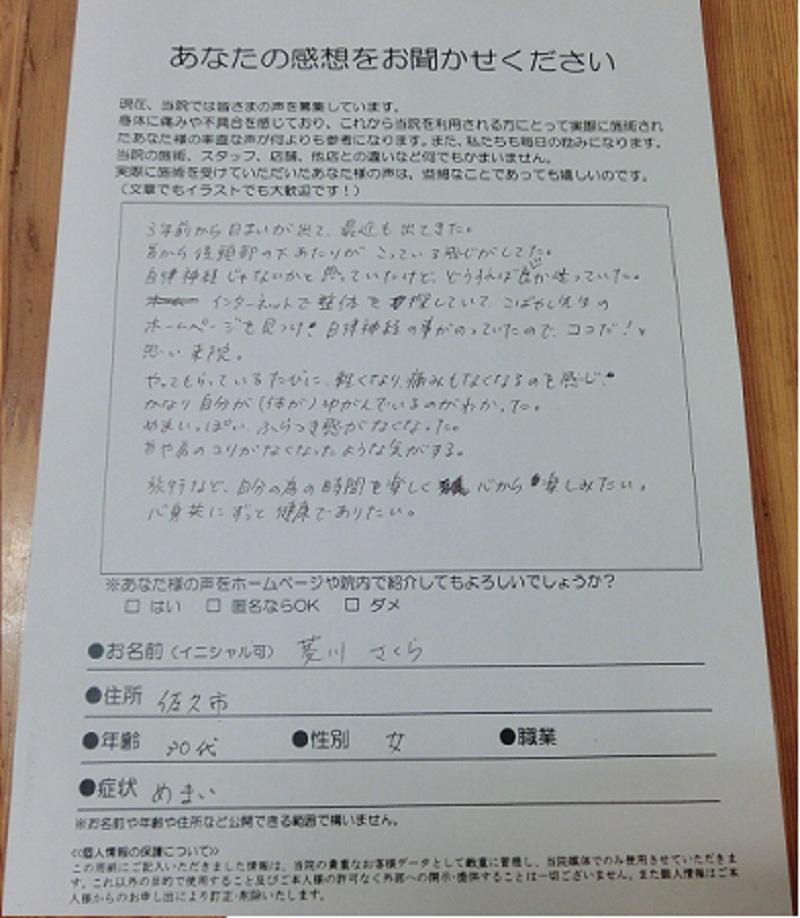 あなたの感想をお聞かせください
現在、当院では皆さまの声を募集しています。
身体に痛みや不具合を感じており、これから当院を利用される方にとって実際に施術され
たあなた様の率直な声が何よりも参考になります。また、私たちも毎日の励みになります。
当院の施術、スタッフ、店舗、他店との違いなど何でもかまいません。
実際に施術を受けていただいたあなた様の声は、些細なことであっても嬉しいのです。
（文章でもイラストでも大歓迎です！）
3年前から目まいが出て、最近も出てきた。
首から後頭部の下あたりがこっている感じがしてた。
自律神経じゃないかと思っていたけど、どうすれば良いか迷っていた。
インターネットで整体を探していて、こばやし先生の
ホームページを見つけ、自律神経の事がのっていたので、ココだ！と
思い来院。
やってもらっているたびに、軽くなり、痛みもなくなるのを感じ、
かなり自分が（体が）ゆがんでいるのがわかった。
めまいっぽい、ふらつき感がなくなった。
首や肩のコリがなくなったような気がする。
旅行など、自分の為の時間を楽しく 心から楽しみたい。
心身共にずっと健康でありたい。
※あなた様の声をホームページや院内で紹介してもよろしいでしょうか？
□ はい □ 匿名ならOK □ ダメ
●お名前（イニシャル可） 菱川 さくら
●住所 佐久市
●年齢 30代 ●性別 女 ●職業
●症状 めまい
※お名前や年齢や住所など公開できる範囲で構いません。
≪個人情報の保護について≫
この用紙にご記入いただきました情報は、当院の貴重なお客様データとして厳重に管理し、当院媒体でのみ使用させていただきま
す。これ以外の目的で使用すること及びご本人様の許可なく外部への開示・提供することは一切ございません。また個人情報はご本
人様からのお申し出により訂正・削除いたします。